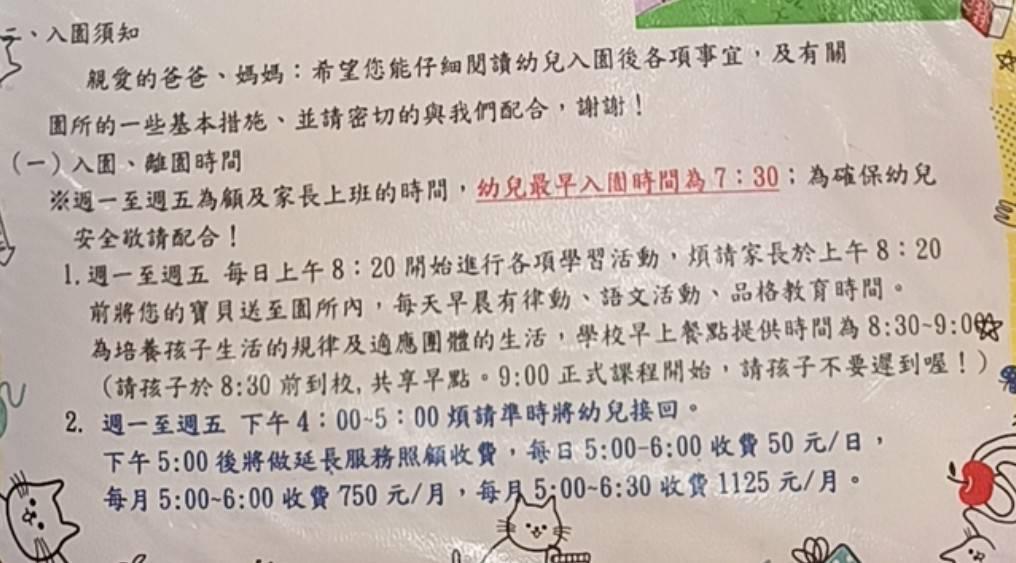 二、入園須知
親愛的爸爸、媽媽：希望您能仔細閱讀幼兒入園後各項事宜，及有關
園所的一些基本措施、並請密切的與我們配合，謝謝！
(一)入園、離園時間
※週一至週五為顧及家長上班的時間，幼兒最早入園時間為 7：30；為確保幼兒
安全敬請配合！
1.週一至週五 每日上午 8：20 開始進行各項學習活動，煩請家長於上午 8：20
前將您的寶貝送至園所內，每天早晨有律動、語文活動、品格教育時間。
為培養孩子生活的規律及適應團體的生活，學校早上餐點提供時間為 8:30~9:00
(請孩子於 8:30 前到校,共享早點。9:00 正式課程開始，請孩子不要遲到喔！)
2. 週一至週五 下午 4：00~5：00 煩請準時將幼兒接回。
下午 5:00 後將做延長服務照顧收費，每日 5:00-6:00 收費 50 元/日，
每月 5:00~6:00 收費 750 元/月，每月 5:00~6:30 收費 1125 元/月。